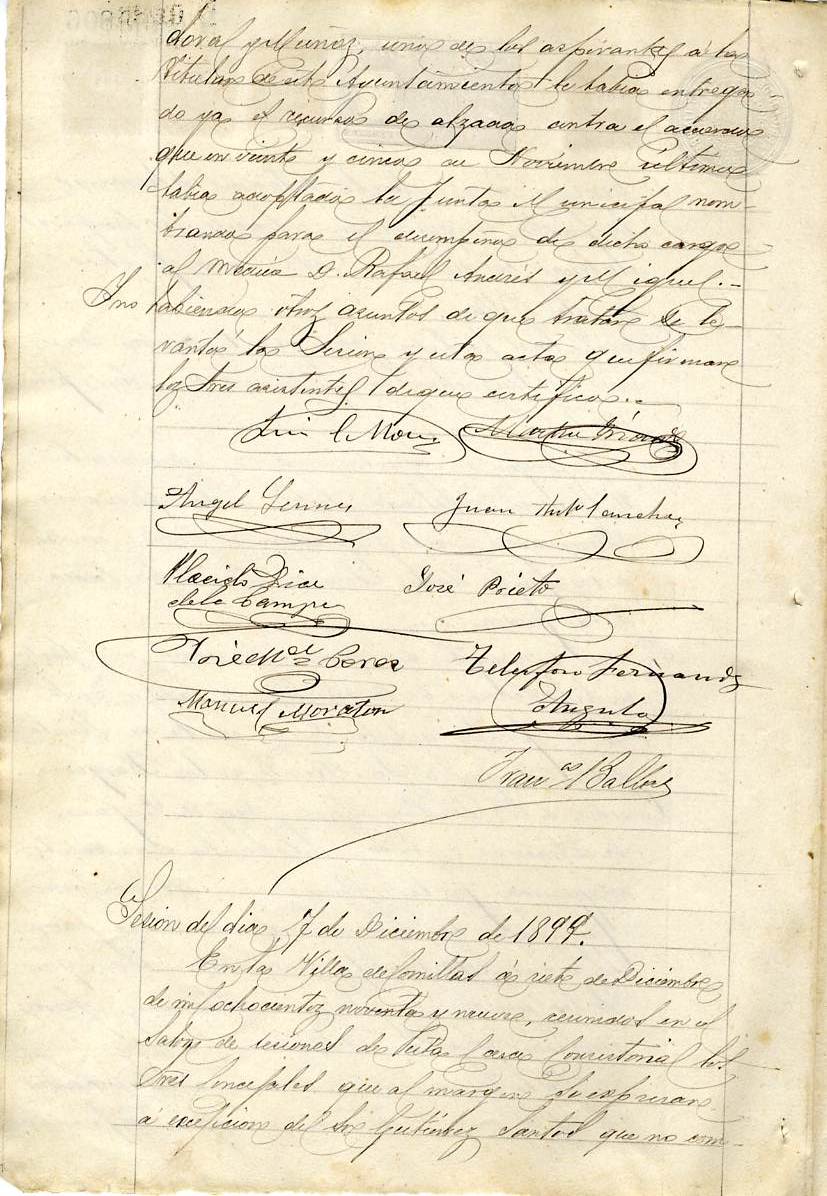 doval y Muñoz, uno de los aspirantes á la
titular de este Ayuntamiento le habia entrega-
do ya el recurso de alzada contra el acuerdo
que en veinte y cinco de Noviembre último
habia adoptado la Junta Municipal nom-
brando para el desempeño de dicho cargo
al médico D. Rafael Andrés y Miguel.-
Y no habiendo otros asuntos de que tratar se le-
vantó la Sesion y esta acta que firman
los Sres asistentes de que certifico.-
Martin
Angel Juan Antº Sanchez
Placido Diaz
de la Campa José Prieto
José Mª Telesforo Fernandez
Manuel Moraton Angulo
Francº
Sesión del dia 7 de Diciembre de 1899.
En la Villa de Comillas á siete de Diciembre
de mil ochocientos noventa y nueve, reunidos en el
Salon de sesiones de esta Casa Consistorial los
Sres Concejales que al margen se expresan
á excepcion del Sr Gutiérrez Santos que no com-